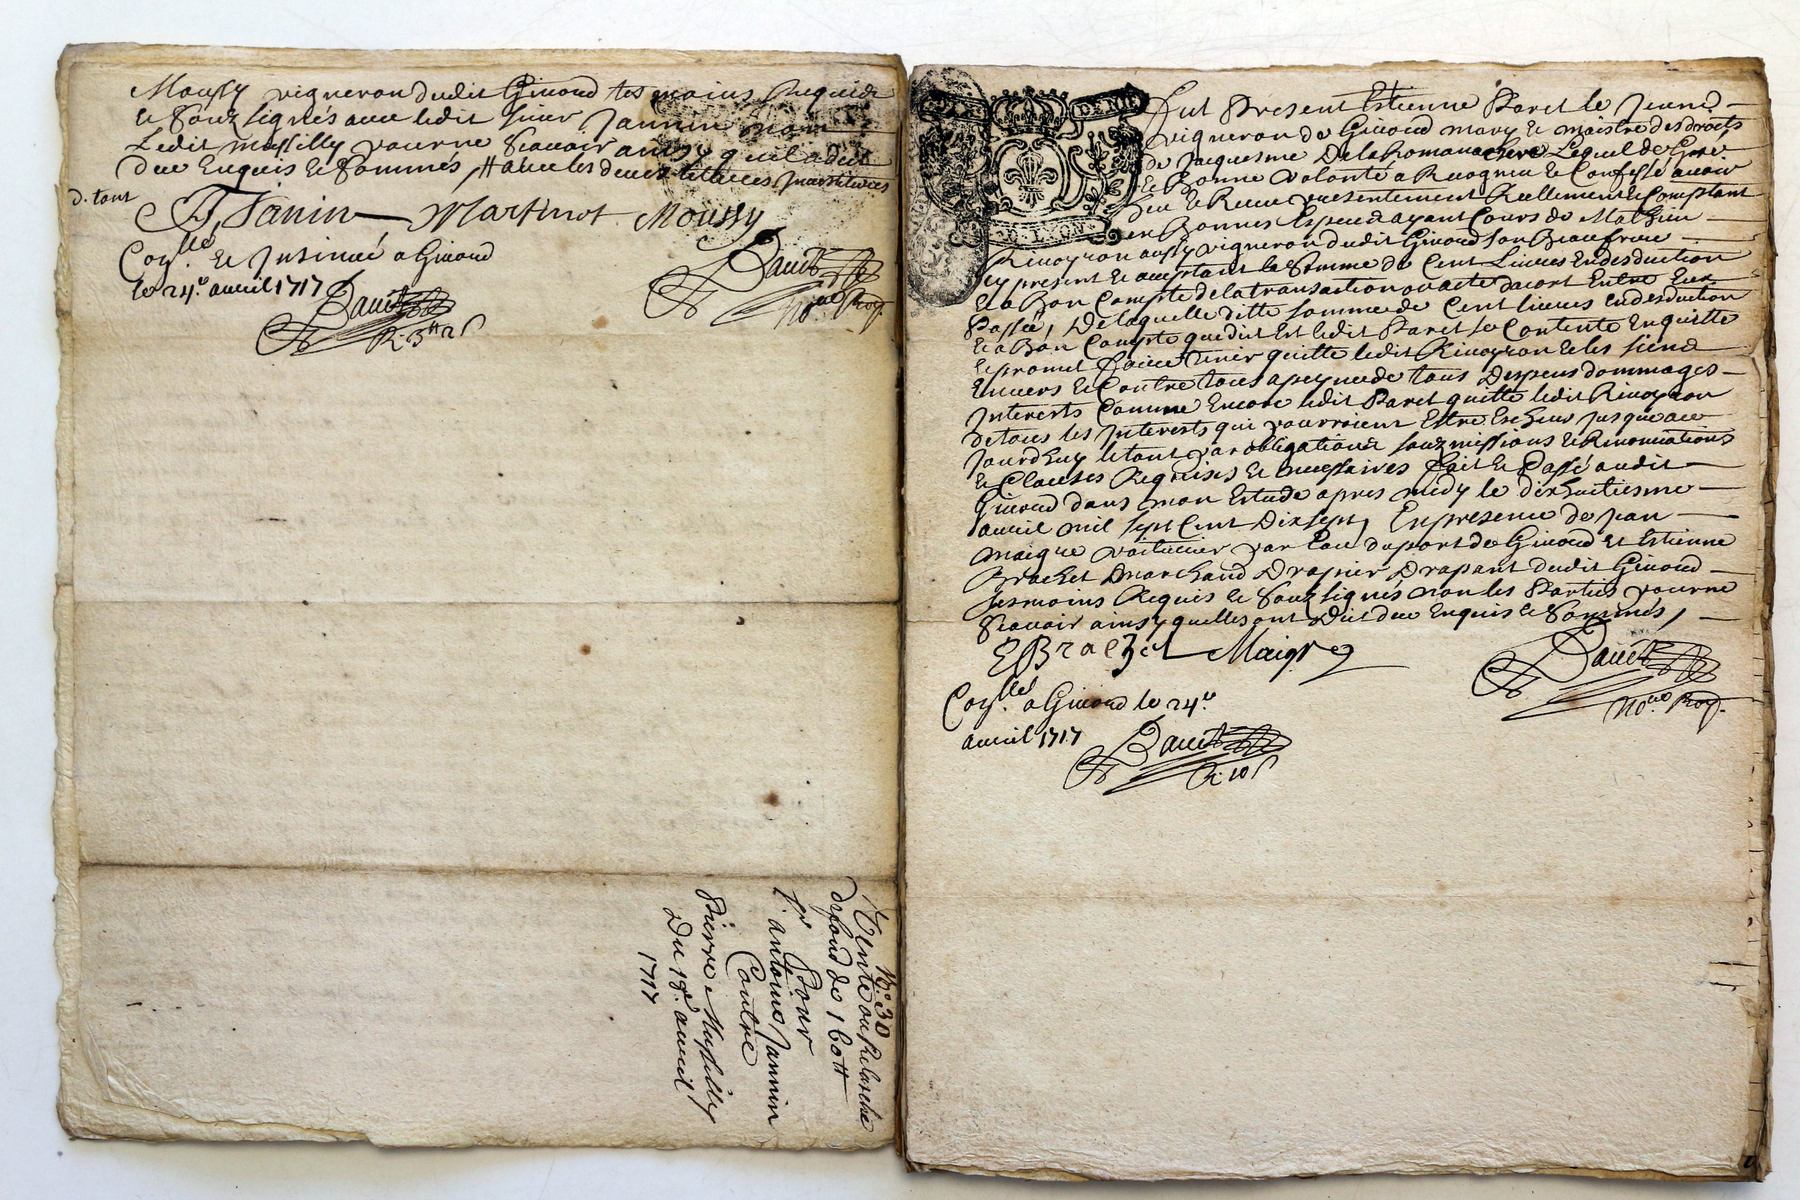 Moussy vigneron dudit Giuord tesmoins Requis
et Souz signés auec ledit sieur Jannin non
Ledit Mussilly pour ne Scauoir ainsy quil a dit
due Enquis et Sommés
d. tant
Janin Martinot Moussy
Con.lle et Insinué a Giuord
le 24.e auril 1717
Dauit
No.re Roy.
Dauit
R. 3# 2s
N.o 30
Vente ou Relasche
de fond de 160#
Pour
s.r antoine Jannin
Contre
Pierre Mussilly
Du 18.e auril
1717
DENIE
G. LYON
Fut Present Estienne Paret le Jeune
vigneron de Giuord mary et maistre des droits
de Jacquesme De la Romanchere Lequel de Gré
et Bonne volonté a Recogneu et Confessé auoir
Heu et Receu presentement Reellement et Comptant
en Bonnes Especes ayant Cours de Mathieu
Riuoyron aussy vigneron dudit Giuord son Beaufrere
icy present et acceptant la Somme de Cent Liures En desduction
Et a Bon Compte de la transaction ou acte dacort Entre Eux
Passée, De laquelle ditte somme de Cent liures En desduction
Et a Bon Compte que dit Est ledit Paret se Contente En quitte
et promet faire Tenir quitte ledit Riuoyron et les siens
Enuers et Contre tous a peyne de tous Despens dommages
Interests Comme Encore ledit Paret quitte ledit Riuoyron
de tous les Interests qui pourroient Estre Escheus jusque au
Jourdhuy le tout par obligations souzmissions et Renonciations
et Clauses Requises et necessaires fait et Passé audit
Giuord dans mon Estude apres midy le dixhuitiesme
auril mil sept Cent Dixsept, En presence de Jean
Maigre voiturier par Eau du port de Giuord et Estienne
Brachet Marchand Drapier Drapant dudit Giuord
tesmoins Requis et Souz signés non les Parties pour ne
Scauoir ainsy quelles ont Dit due Enquis et Sommés,
E Brachet Maigre
Dauit
No.re Roy.
Con.lle a Giuord le 24.e
auril 1717
Dauit
R. 10s